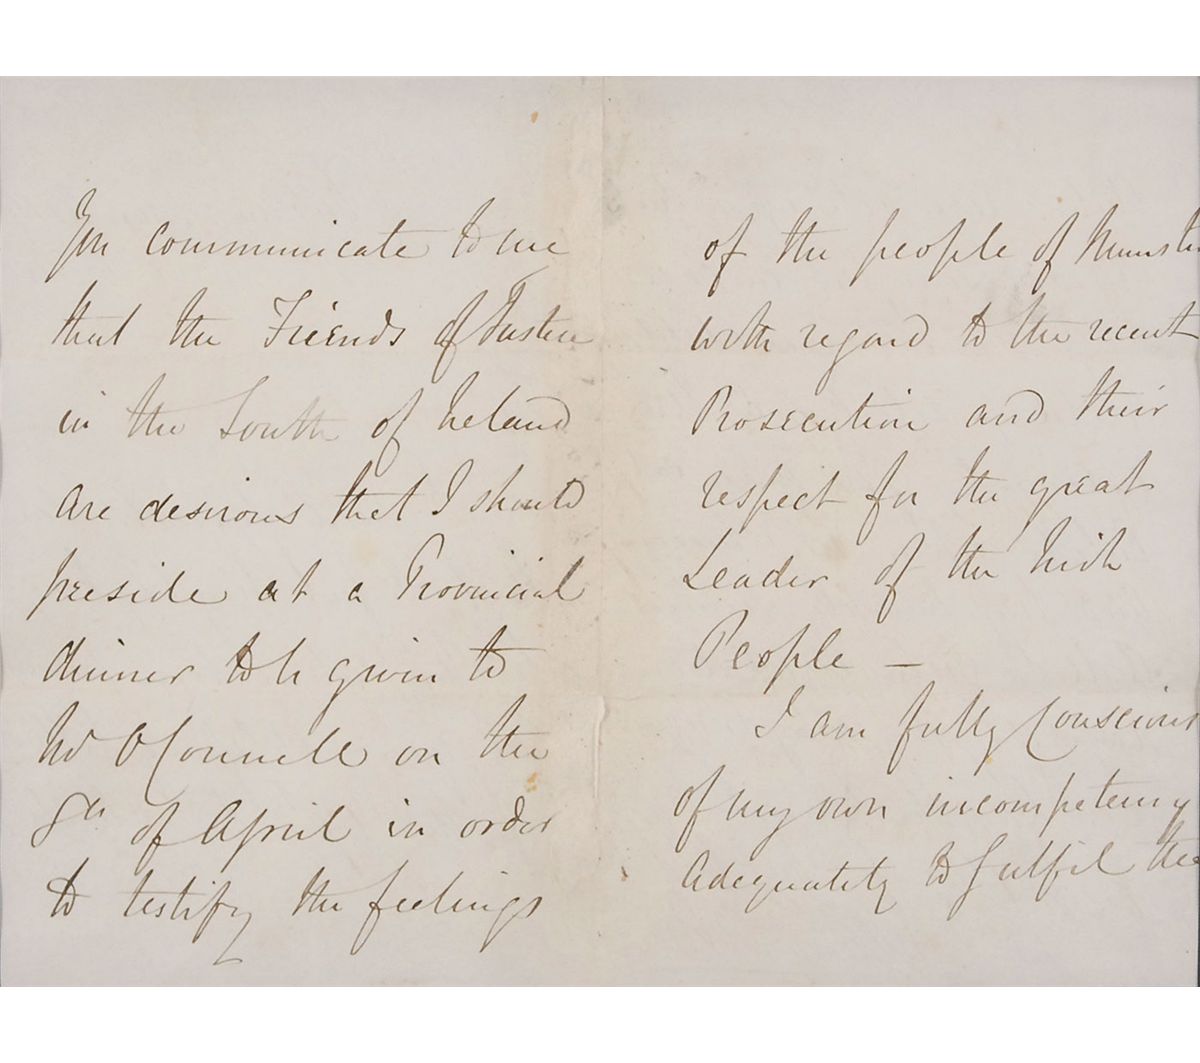 You communicate to me
that the Friends of Justice
in the South of Ireland
are desirous that I should
preside at a Provincial
dinner to be given to
Mr O'Connell on the
8th of April in order
to testify the feelings
of the people of Munster
with regard to the recent
Prosecution and their
respect for the great
Leader of the Irish
People —
I am fully conscious
of my own incompetency
adequately to fulfil the